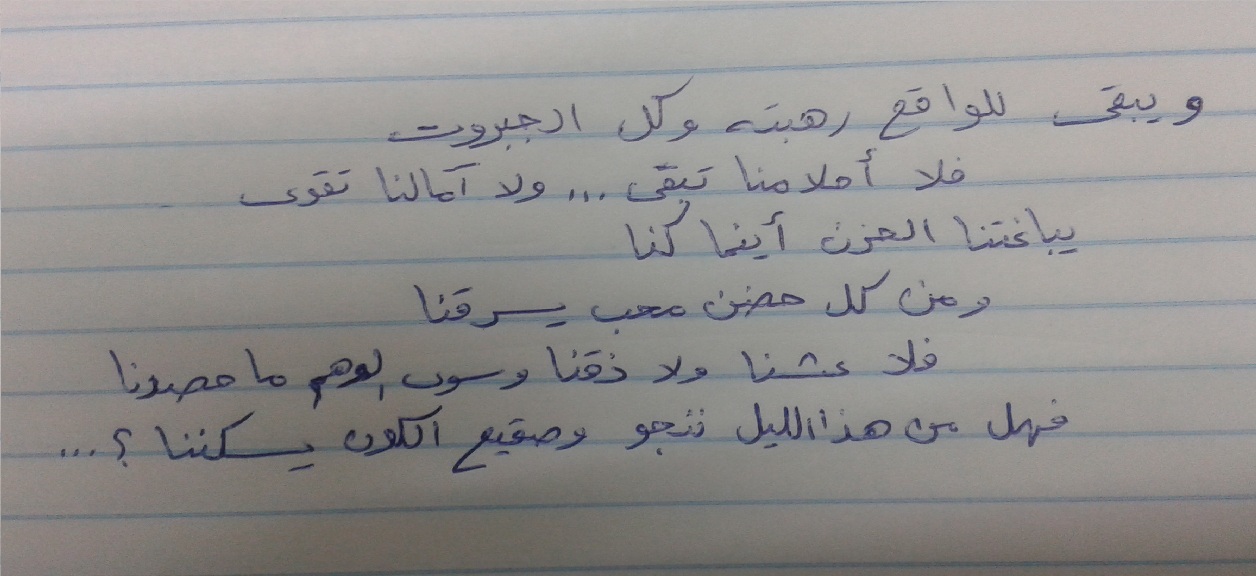 ويبقى للواقع رهبته وكل الجبروت
فلا أحلامنا تبقى ... ولا آمالنا تقوى
يباغتنا الحزن أينما كنا
ومن كل حضن محب يسرقنا
فلا عشنا ولا ذقنا وسوى الوهم ما حصدنا
فهل من هذا الليل ننجو وصقيع الكون يسكننا ؟...